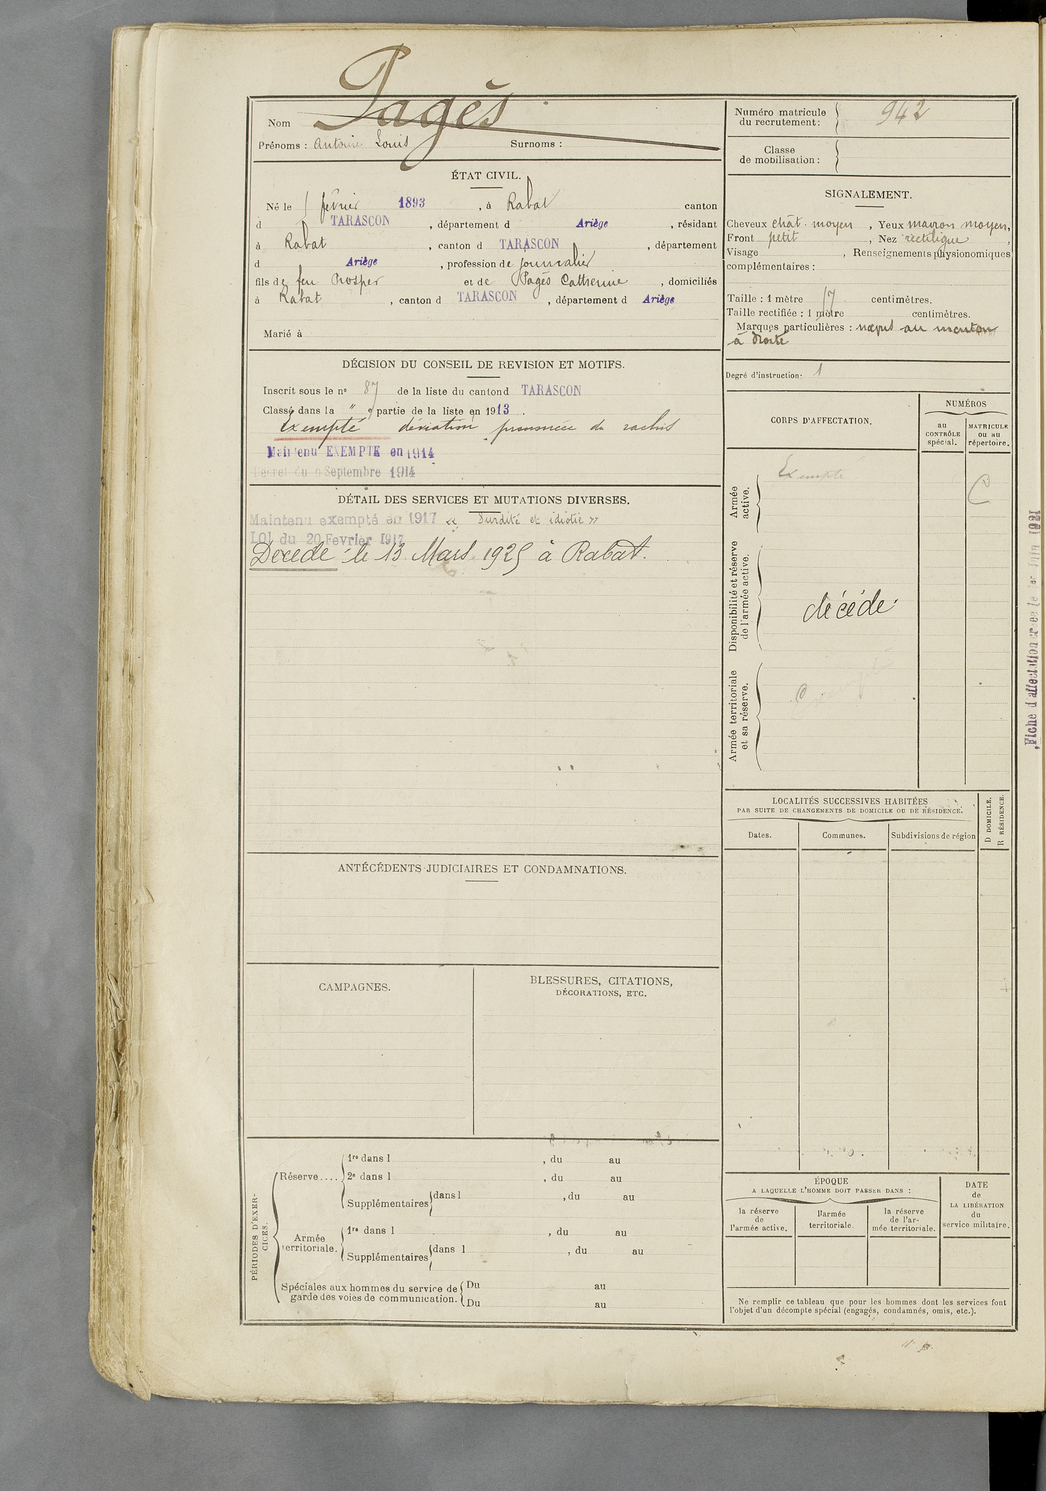 Nom Pagès
Prénoms : Antoine Louis Surnoms :
ÉTAT CIVIL.
Né le 1 février 1893, à Rabat canton
d TARASCON, département d Ariège, résidant
à Rabat, canton d TARASCON, département
d Ariège, profession de journalier
fils de feu Prosper et de Pagès Catherine, domiciliés
à Rabat, canton d TARASCON, département d Ariège
Marié à
DÉCISION DU CONSEIL DE REVISION ET MOTIFS.
Inscrit sous le nº 87 de la liste du canton d TARASCON
Classé dans la " e partie de la liste en 1913.
Exempté déviation prononcée du rachis
Maintenu EXEMPTÉ en 1914
Décret du 9 Septembre 1914
DÉTAIL DES SERVICES ET MUTATIONS DIVERSES.
Maintenu exempté en 1917 « Surdité et idiotie »
LOI du 20 Février 1917
Décédé le 13 Mars 1925 à Rabat.
ANTÉCÉDENTS JUDICIAIRES ET CONDAMNATIONS.
CAMPAGNES.
BLESSURES, CITATIONS,
DÉCORATIONS, ETC.
PÉRIODES D'EXERCICES.
Réserve....
1re dans l , du au
2e dans l , du au
Supplémentaires dans l , du au
Armée territoriale.
1re dans l , du au
Supplémentaires dans l , du au
Spéciales aux hommes du service de
garde des voies de communication.
Du au
Du au
Numéro matricule
du recrutement : 942
Classe
de mobilisation :
SIGNALEMENT.
Cheveux chât. moyen, Yeux marron moyen,
Front petit, Nez rectiligne,
Visage , Renseignements physionomiques
complémentaires :
Taille : 1 mètre 17 centimètres.
Taille rectifiée : 1 mètre centimètres.
Marques particulières : nœpus au menton
à droite
Degré d'instruction : 1
CORPS D'AFFECTATION.
NUMÉROS
au
CONTRÔLE
spécial.
MATRICULE
ou au
répertoire.
Armée
active.
Exempté
C
Disponibilité et réserve
de l'armée active.
décédé
Armée territoriale
et sa réserve.
LOCALITÉS SUCCESSIVES HABITÉES
PAR SUITE DE CHANGEMENTS DE DOMICILE OU DE RÉSIDENCE.
Dates.
Communes.
Subdivisions de région
D DOMICILE.
R RÉSIDENCE.
ÉPOQUE
A LAQUELLE L'HOMME DOIT PASSER DANS :
la réserve
de
l'armée active.
l'armée
territoriale.
la réserve
de l'ar-
mée territoriale.
DATE
de
LA LIBÉRATION
du
service militaire.
Ne remplir ce tableau que pour les hommes dont les services font
l'objet d'un décompte spécial (engagés, condamnés, omis, etc.).
Fiche d'affectation créée le 1er Juin 1921